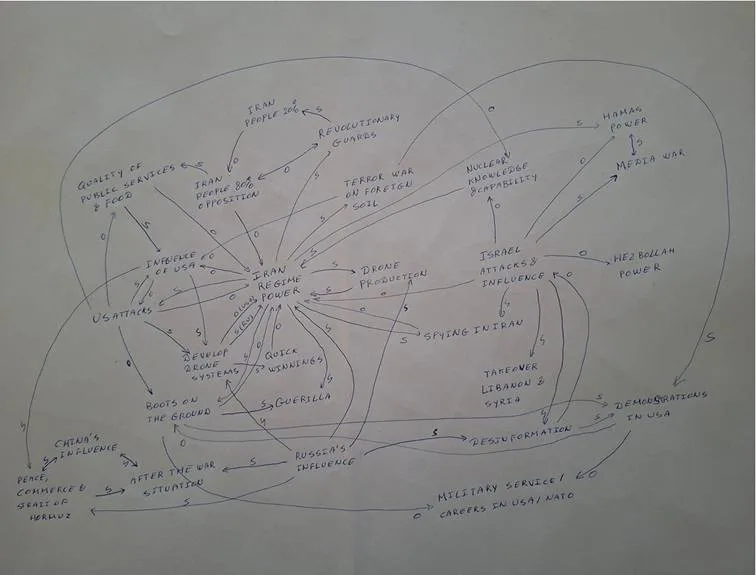 IRAN
PEOPLE 20%
REVOLUTIONARY
GUARDS
HAMAS
POWER
MEDIA WAR
QUALITY OF
PUBLIC SERVICES
& FOOD
IRAN
PEOPLE 80%
OPPOSITION
TERROR WAR
ON FOREIGN
SOIL
NUCLEAR
KNOWLEDGE
& CAPABILITY
INFLUENCE
OF USA
IRAN
REGIME
POWER
DRONE
PRODUCTION
ISRAEL
ATTACKS &
INFLUENCE
HEZBOLLAH
POWER
US ATTACKS
SPYING IN IRAN
DEVELOP
DRONE
SYSTEMS
QUICK
WINNINGS
TAKEOVER
LIBANON &
SYRIA
BOOTS ON
THE GROUND
GUERILLA
DEMONSTRATIONS
IN USA
DESINFORMATION
CHINA'S
INFLUENCE
RUSSIA'S
INFLUENCE
AFTER THE WAR
SITUATION
PEACE,
COMMERCE &
STRAIT OF
HORMUZ
MILITARY SERVICE/
CAREERS IN USA/NATO